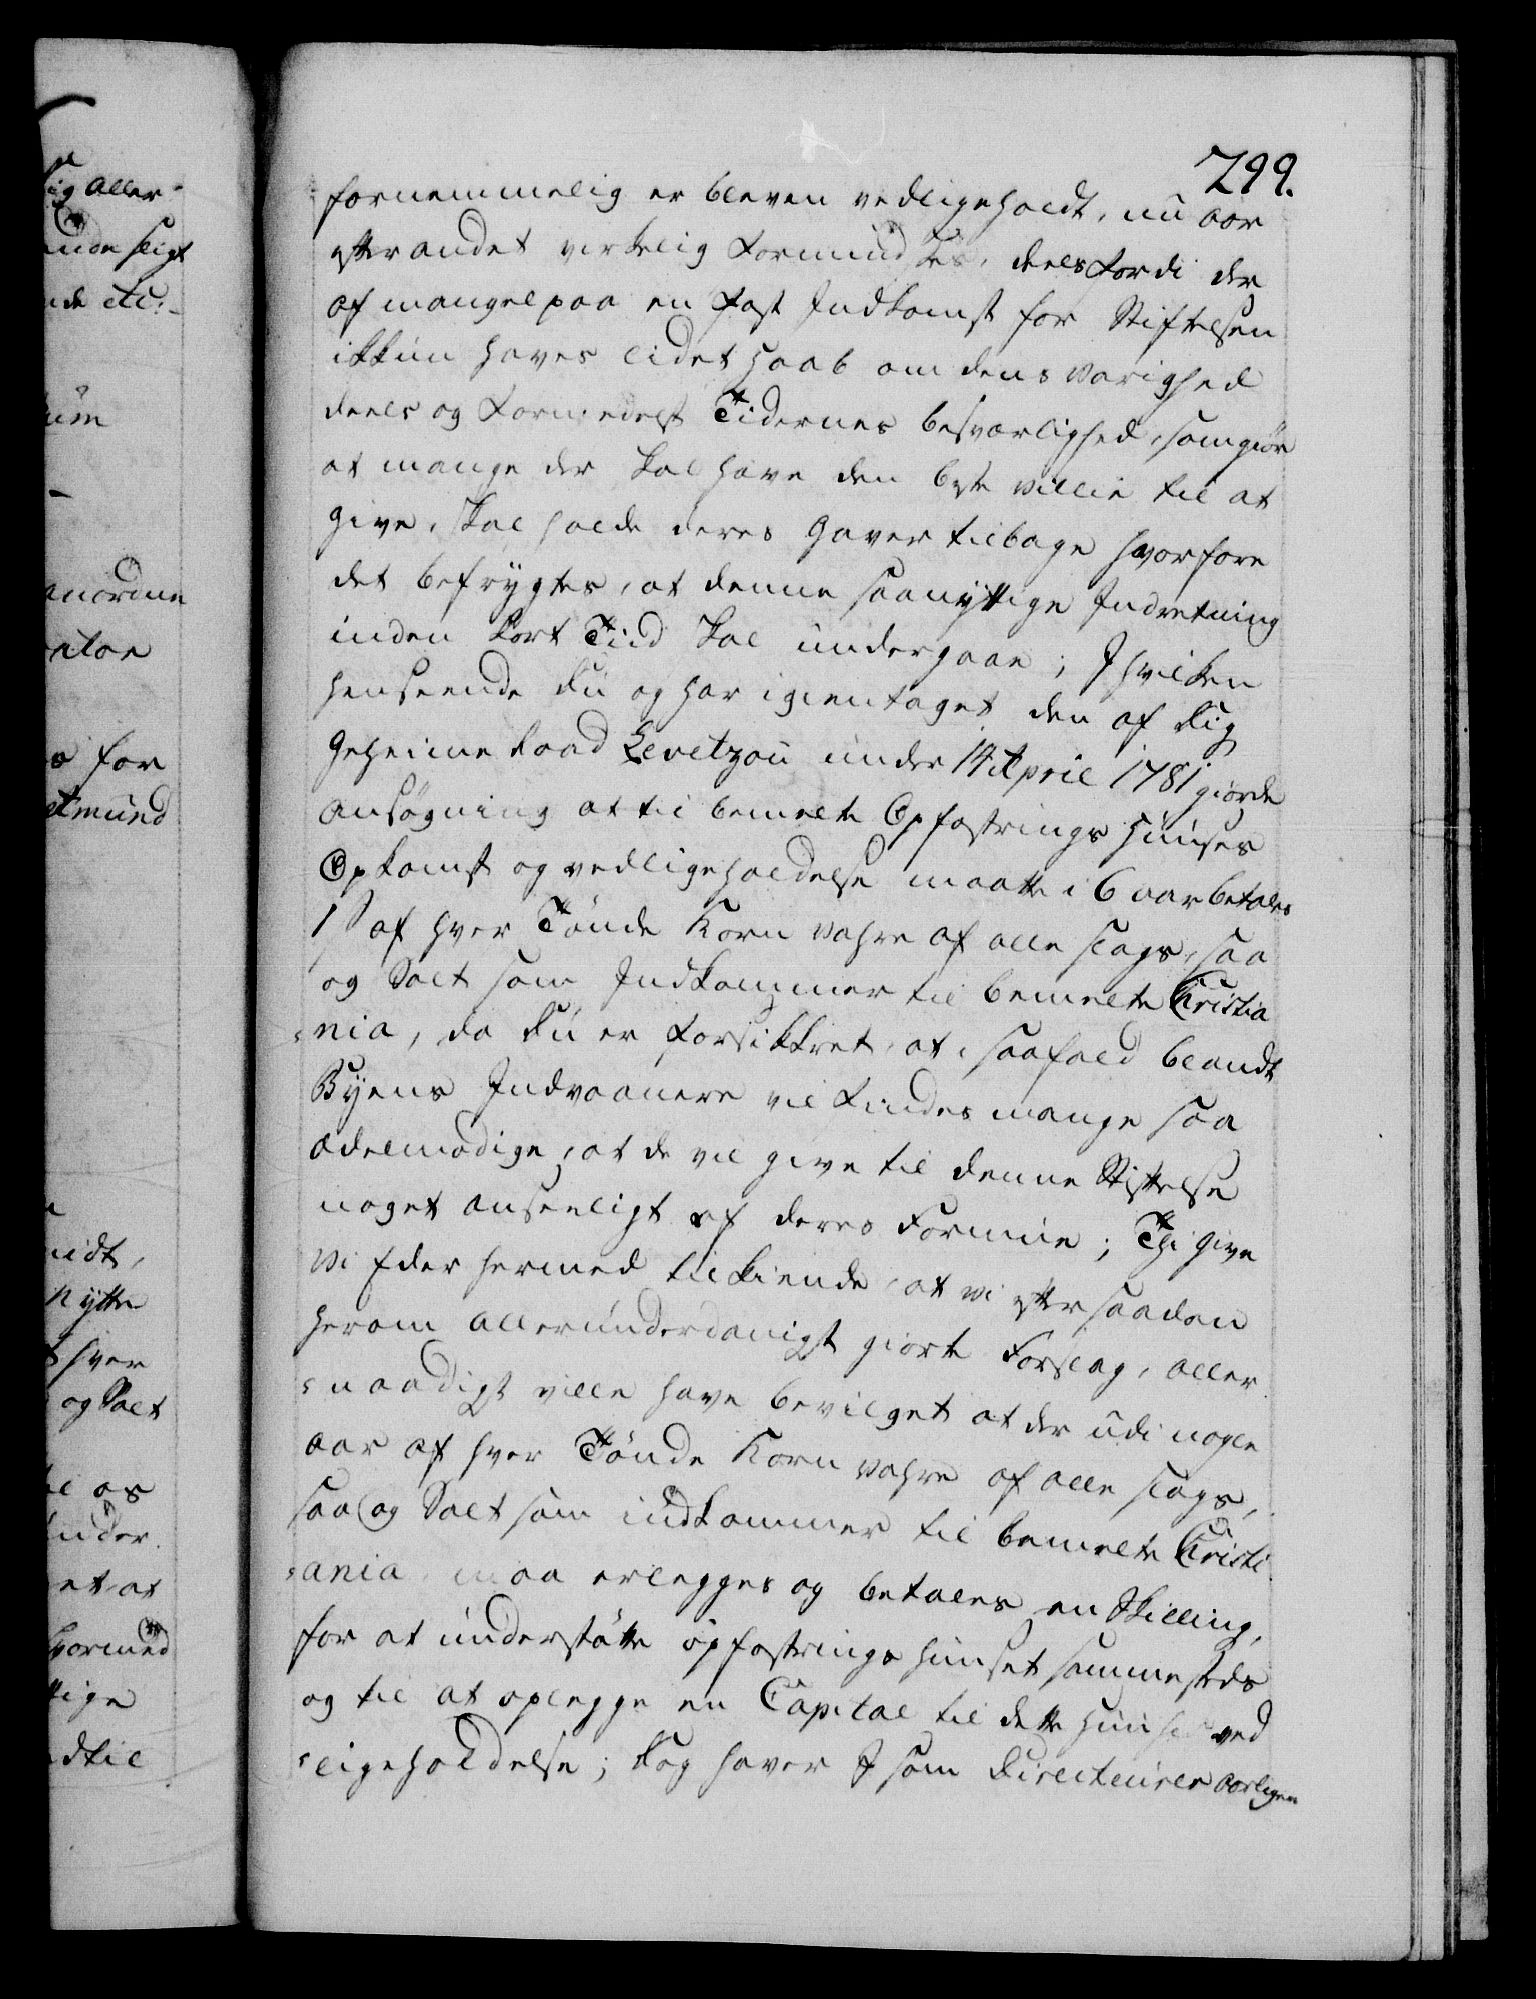 299.
fornemmelig er bleven vedligeholdt, nu Aar
efter andet virkelig formindskes, deels fordi der
af mangel paa en fast Indkomst for Stiftelsen
ikkun haves lidet Haab om dens varighed
deels og formedelst Tidernes besværlighed, som giør
at mange der skal have den beste villie til at
give, skal holde deres Gaver tilbage hvorfore
det befrygtes, at denne saa nyttige Indretning
inden kort Tiid skal undergaae; I hvilken
henseende du og har igientaget den af dig
Geheime Raad Levetzou under 14 April 1781 giorde
ansøgning at til bemelte Opfostrings Huuses
Opkomst og vedligeholdelse maatte i 6 aar betales
1 s af hver Tønde Korn vahre af alle slags, saa
og Salt som Indkommer til bemelte Christia
=nia, da du er forsikkret, at i saafald blandt
Byens Indvaanere vil findes mange saa
ædelmodige, at de vil give til denne Stiftelse
noget anseeligt af deres Formue; Thi give
Vi Eder hermed tilkiende, at vi efter saadan
herom allerunderdanigst giorte Forslag, aller
=naadigst ville have bevilget at der udi nogle
Aar af hver Tønde Korn vahre af alle slags,
saa og Salt som indkommer til bemelte Christi
=ania, maa erlegges og betales en Skilling,
for at understøtte opfostrings huuset sammesteds
og til at oplegge en Capital til dette huuses ved
=ligeholdelse; dog haver I som Directeurer aarligen